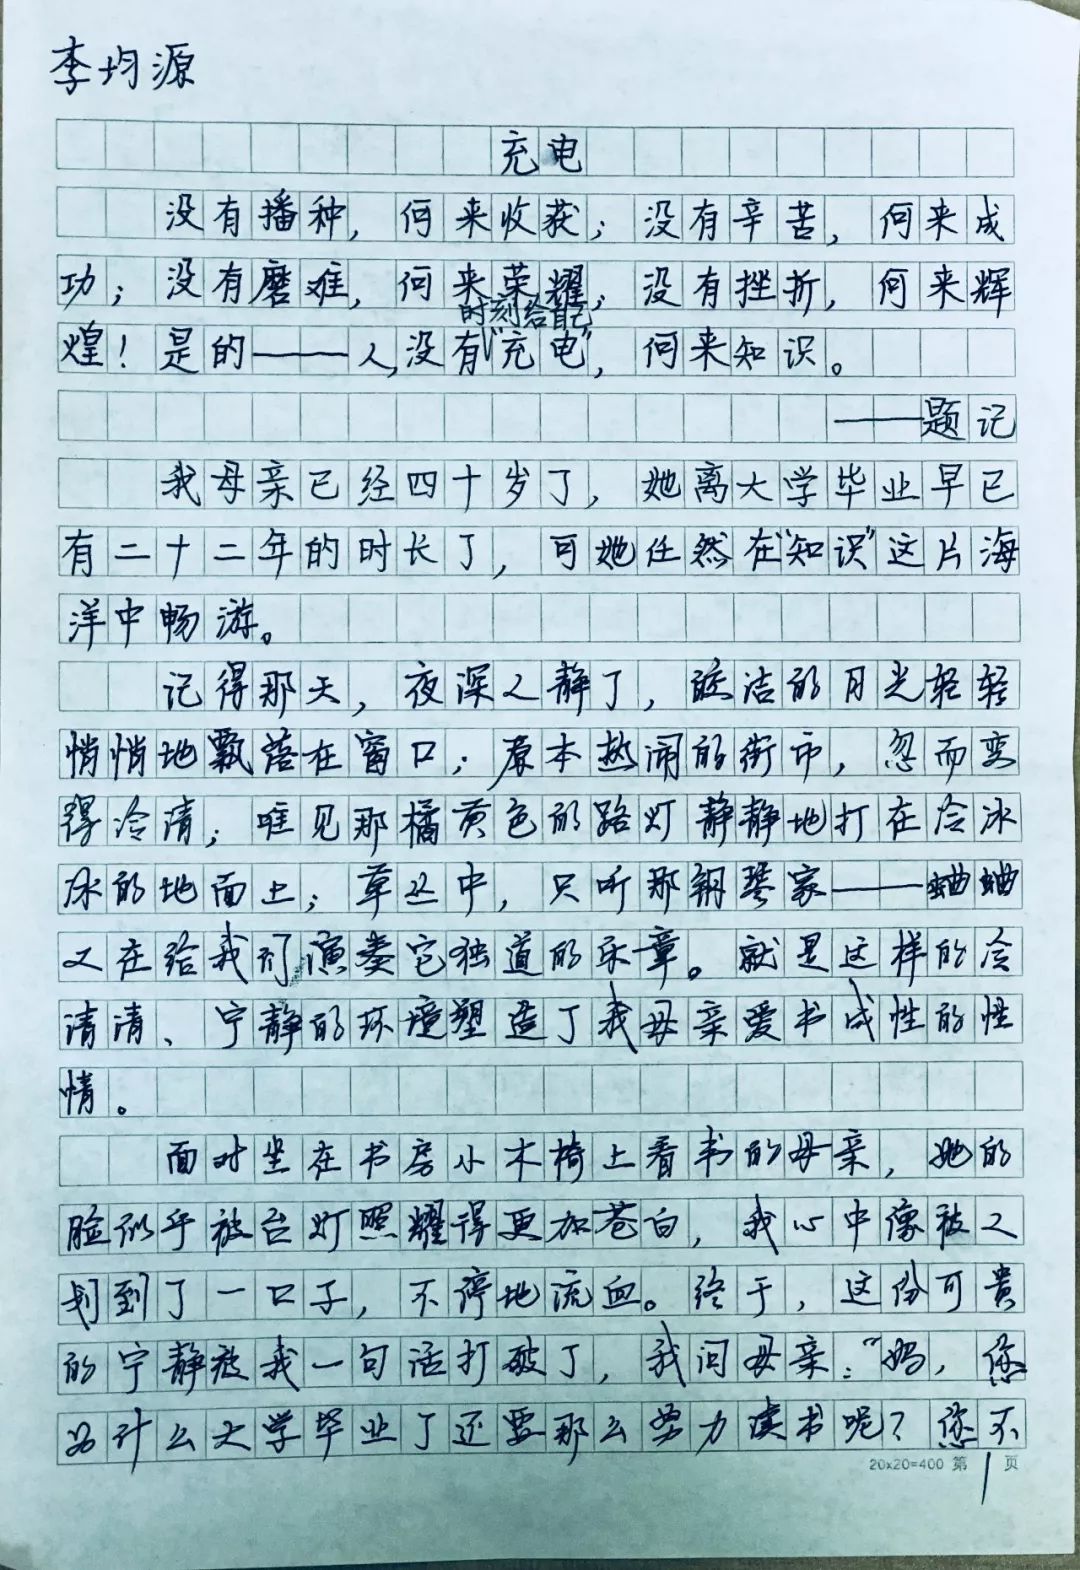 李均源
充电
没有播种，何来收获；没有辛苦，何来成
功；没有磨难，何来荣耀；没有挫折，何来辉
时刻给自己
煌！是的——人，没有“充电”，何来知识。
——题记
我母亲已经四十岁了，她离大学毕业早已
有二十二年的时长了，可她任然在“知识”这片海
洋中畅游。
记得那天，夜深人静了，皎洁的月光轻轻
悄悄地飘落在窗口；原本热闹的街市，忽而变
得冷清；唯见那橘黄色的路灯静静地打在冷冰
冰的地面上；草丛中，只听那钢琴家——蛐蛐
又在给我们演奏它独道的乐章。就是这样的冷
清清、宁静的环境塑造了我母亲爱书成性的性
情。
面对坐在书房小木椅上看书的母亲，她的
脸似乎被台灯照耀得更加苍白，我心中像被人
划到了一口子，不停地流血。终于，这份可贵
的宁静被我一句话打破了，我问母亲：“妈，您
为什么大学毕业了还要那么努力读书呢？您不
20x20=400 第1页